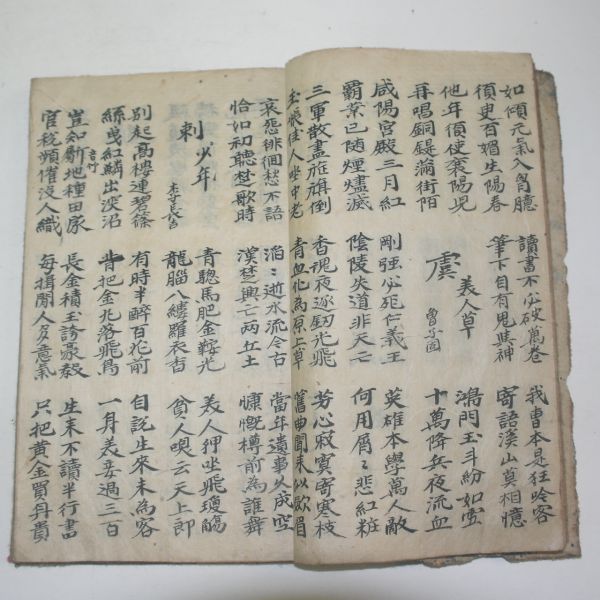 如傾元氣入胷臆
須臾百媚生陽春
讀書不必破萬卷
筆下自有鬼與神
我曹本是狂吟客
寄語溪山莫相憶
他年須使襄陽兒
再唱銅鍉滿街陌
虞美人草
曾子固
鴻門玉斗紛如雪
十萬降兵夜流血
咸陽宮殿三月紅
霸業已隨煙燼滅
剛强必死仁義王
陰陵失道非天亡
英雄本學萬人敵
何用屑〻悲紅粧
三軍散盡旌旗倒
玉帳佳人坐中老
香魂夜逐釖光飛
青血化為原上草
芳心寂寞寄寒枝
舊曲聞來似歛眉
哀怨徘徊愁不語
恰如初聽楚歌時
滔〻逝水流今古
漢楚興亡兩丘土
當年遺事以成空
慷慨樽前為誰舞
刺少年
李長吉
青驄馬肥金鞍光
龍腦入縷羅衣香
美人狎坐飛瓊觴
貧人喚云天上郎
別起高樓連碧篠
絲曳紅鱗出深沼
有時半醉百花前
背把金丸落飛鳥
自說生來未為客
一身美妾過三百
豈知斸地種田家
官稅頻催沒人織
長金積玉誇豪毅
每揖閒人多意氣
生來不讀半行書
只把黃金買身貴